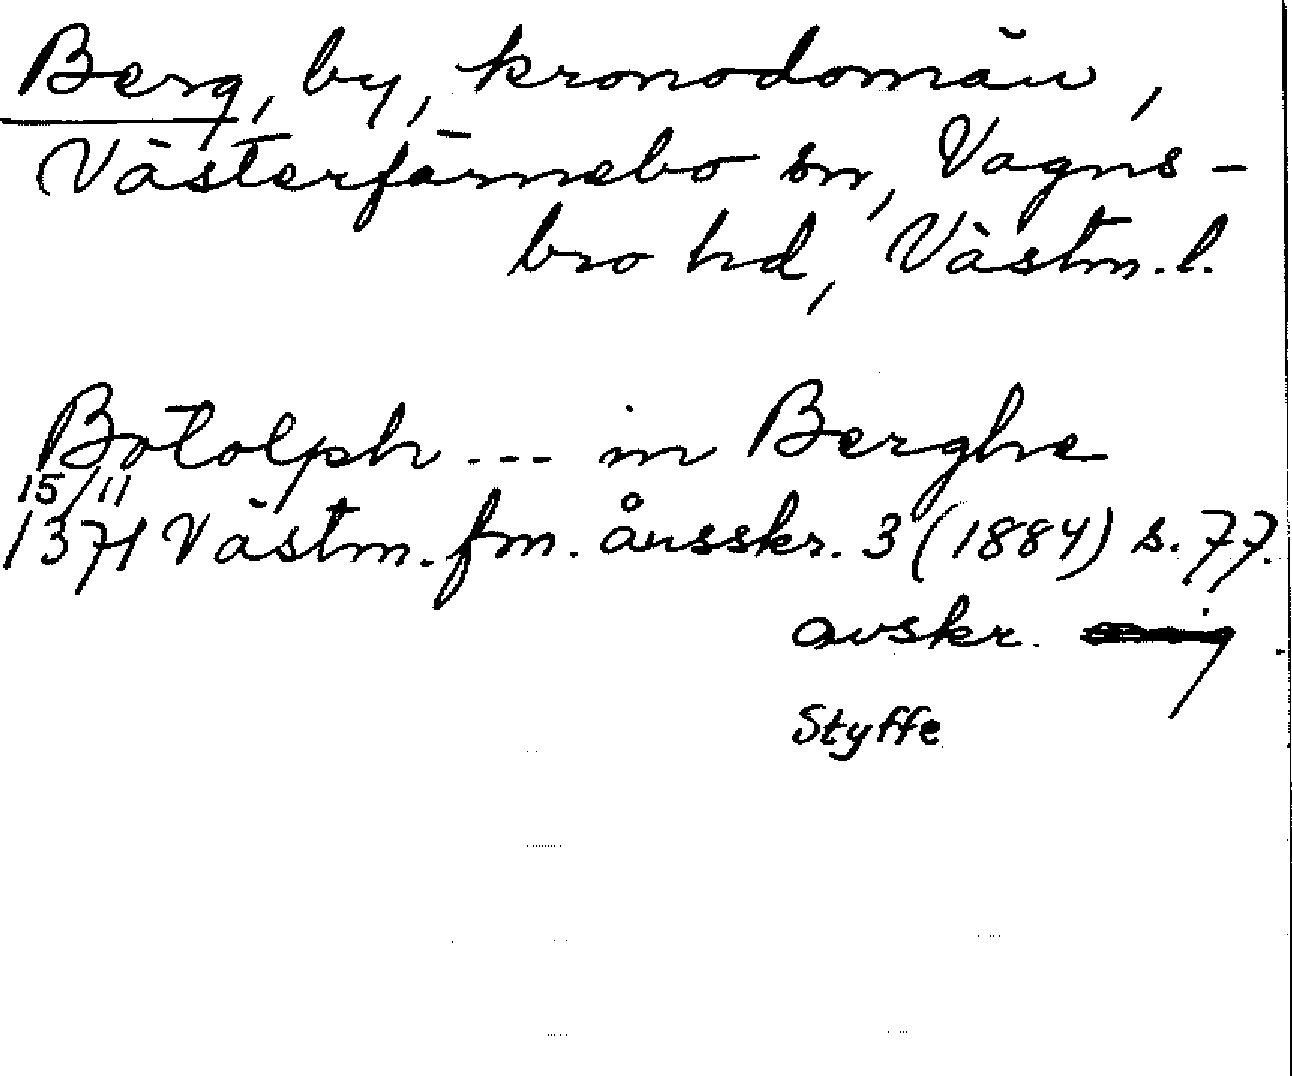 Berg, by, kronodomän,
Västerfärnebo sn, Vagns-
bro hd, Västm. l.
Botolph --- in Berghe
15/11
1371 Västm. fm. årsskr. 3 (1884) s. 77.
avskr.
Styffe